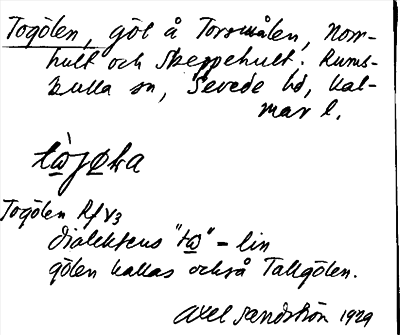 Togölen, göl å Torsmålen, Norr-
hult och Skeppehult. Rums-
kulla sn, Sevede hd, Kal-
mar l.
tὼjøka
Togölen Rf v3
dialektens "tω" = lin
gölen kallas också Tallgölen.
Axel Sandström 1929